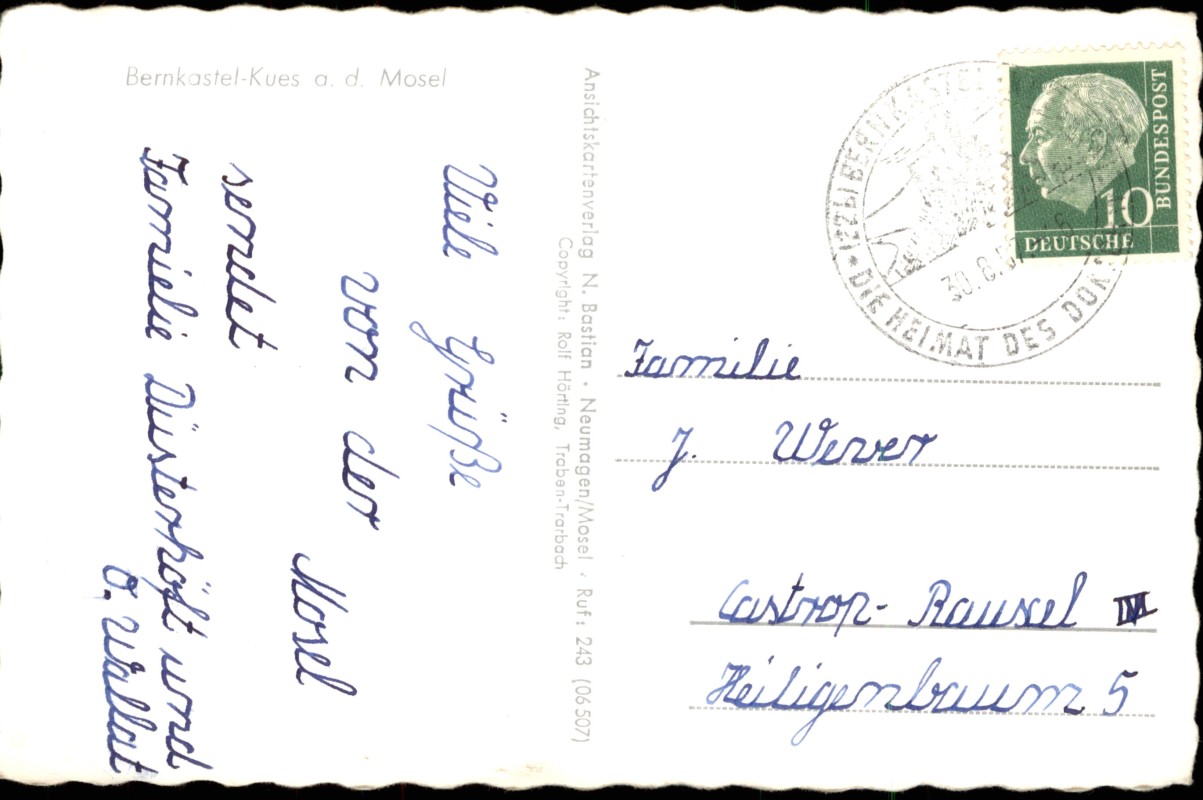 Bernkastel-Kues a. d. Mosel
Viele Grüße
von der
Mosel
sendet
Familie Düsterhöft und
O. Wallat
Ansichtskartenverlag N. Bastian · Neumagen/Mosel · Ruf: 243 (06507)
Copyright: Rolf Hörting, Traben-Trarbach
(22b) BERNKASTEL
DIE HEIMAT DES
30.8.
10
DEUTSCHE
BUNDESPOST
Familie
J. Wever
Castrop-Rauxel
Heiligenbaum 5